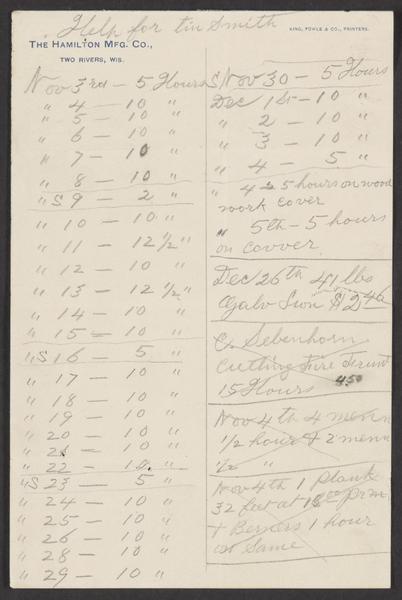 Help for tin Smith
KING, FOWLE & CO., PRINTERS.
THE HAMILTON MFG. CO.,
TWO RIVERS, WIS.
Nov 3rd - 5 Hours
" 4 - 10 "
" 5 - 10 "
" 6 - 10 "
" 7 - 10 "
" 8 - 10 "
" S 9 - 2 "
" 10 - 10 "
" 11 - 12 1/2 "
" 12 - 10 "
" 13 - 12 1/2 "
" 14 - 10 "
" 15 - 10 "
" S 16 - 5 "
" 17 - 10 "
" 18 - 10 "
" 19 - 10 "
" 20 - 10 "
" 21 - 10 "
" 22 - 10 "
" S 23 - 5 "
" 24 - 10 "
" 25 - 10 "
" 26 - 10 "
" 28 - 10 "
" 29 - 10 "
S Nov 30 - 5 Hours
Dec 1st - 10 "
" 2 - 10 "
" 3 - 10 "
" 4 - 5 "
" 4 - 5 hours on wood
work cover
" 5th - 5 hours
on covver
Dec 26th 41 lbs
Galv Iron $2.46
C. Sebenhorn
Cutting Fire
15 Hours 4.50
Nov 4th 4 menn
1/2 hour & 2 menn
1/2 "
Nov 4th 1 Plank
32 feet at 18.00 pr m
+ Berners 1 hour
at Same